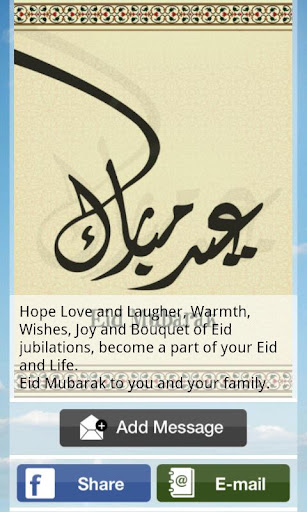 عيد مبارك
Eid Mubarak
Hope Love and Laugher, Warmth,
Wishes, Joy and Bouquet of Eid
jubilations, become a part of your Eid
and Life.
Eid Mubarak to you and your family.
Add Message
Share
E-mail